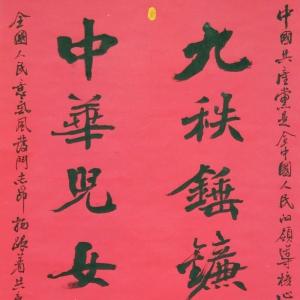 中國共産黨是全中國人民的領導核心
九秩錘鐮
中華兒女
全國人民意氣風發鬥志昂揚跟着共